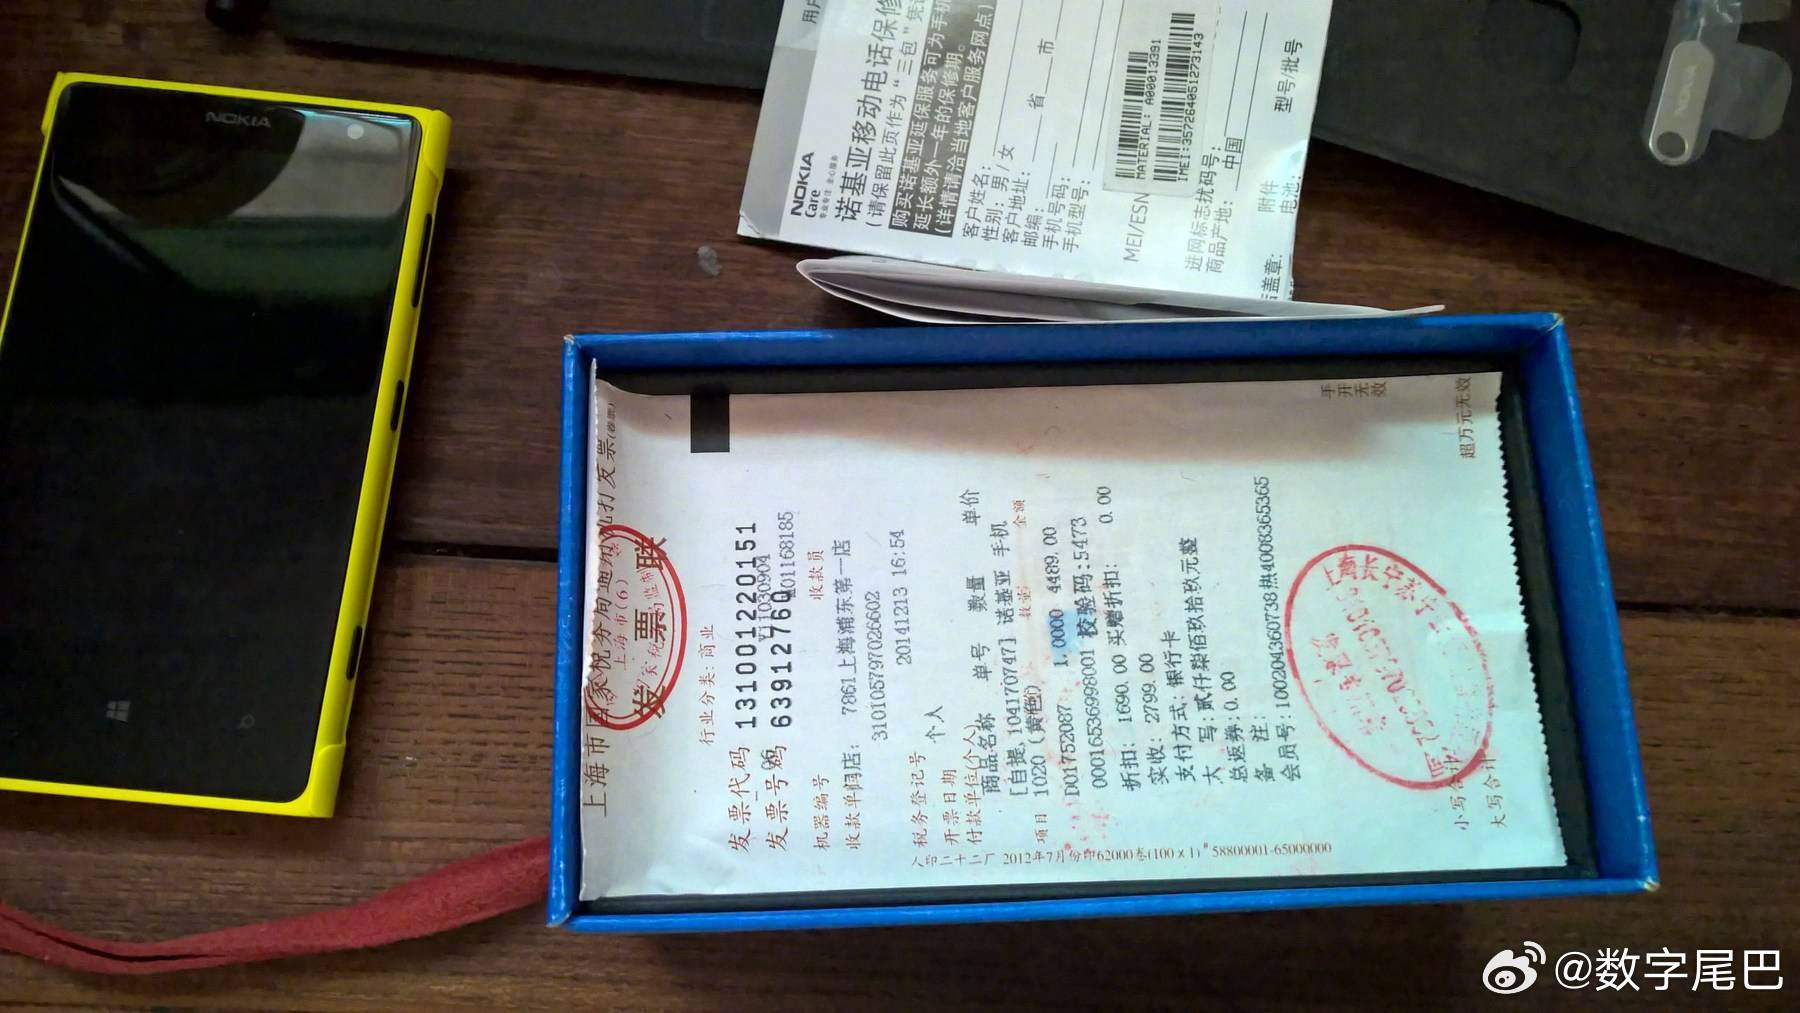 NOKIA
用户
NOKIA
Care
专业专注 全心服务
诺基亚移动电话保修
(请保留此页作为“三包”凭证
购买诺基亚延保服务可为手机
延长额外一年的保修期。
(详情请洽当地客户服务网点)
客户姓名:
性别: 男/女
客户地址: 省 市
邮编:
手机号码:
手机型号:
MATERIAL: A00013391
IMEI:357264051273143
MEI/ESN
进网标志扰码号:
商品产地: 中国
附件 型号/批号
电池:
盖章:
NOKIA
上海市国家税务局通用机打发票(卷票)
发票联
上海市(6)
行业分类: 商业
发票代码 131001220151
发票号码 63912760
机器编号 收款员
收款单位 门店: 7861上海浦东第一店
310105797026602
税务登记号 20141213 16:54
开票日期 个人
付款单位(个人)
商品名称 单号 数量 单价
[自提,1041707747] 诺基亚 手机
1020 (黄色)
项目 数量 金额
D01752087 1.0000 4489.00
000165369998001 校验码:5473
折扣: 1690.00 买赠折扣: 0.00
实收: 2799.00
支付方式: 银行卡
大 写:贰仟柒佰玖拾玖元整
总返券:0.00
备 注:
会员号:100204360738热4008365365
小写合计
大写合计
手开无效
超万元无效
2012年7月份印62000卷(100×1) 58800001-65000000
@数字尾巴